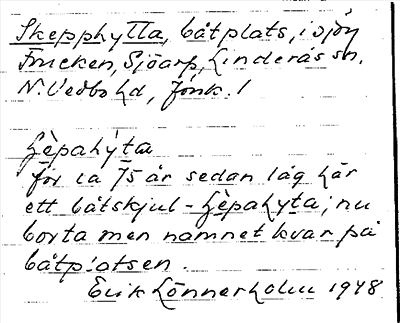 Skepphytta, båtplats, i sjön
Frucken, Sjöarp, Linderås sn.
N. Vedbo hd, Jönk. l
Hèpahýta
för ca 75 år sedan låg här
ett båtskjul - Hèpahyta; nu
borta men namnet kvar på
båtplatsen.
Erik Lönnerholm 1948